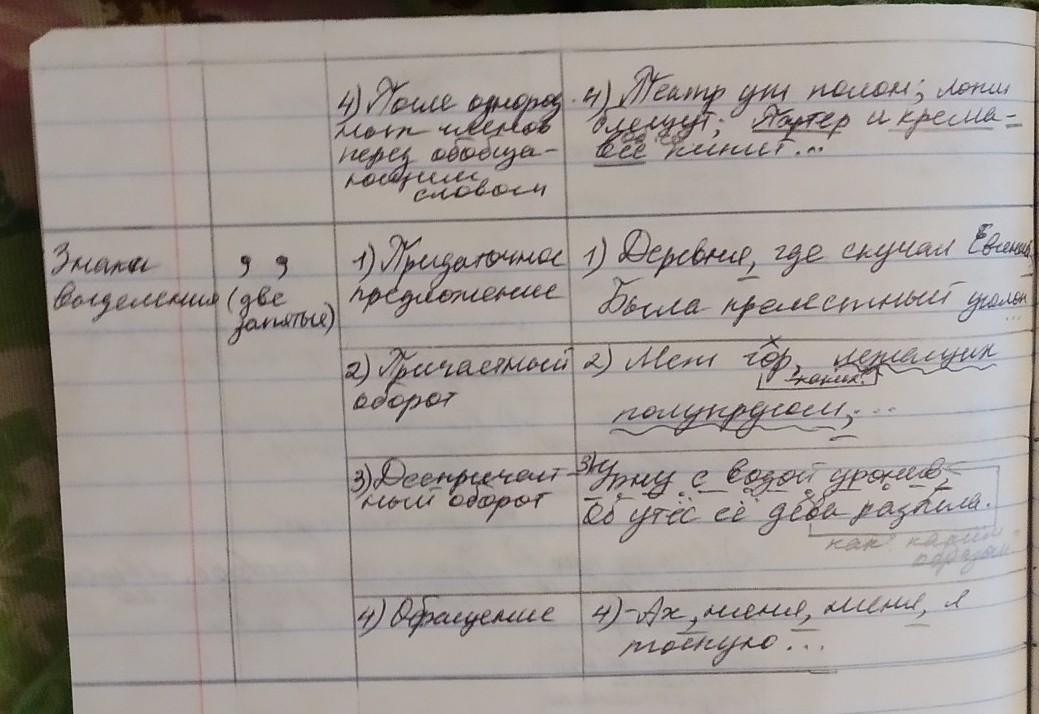 4) После однород
ных членов
перед обобща-
ющим
словом
4) Театр уж полон; ложи
блещут; Партер и кресла-
всё кипит...
Знаки
выделения
, ,
(две
запятые)
1) Придаточное
предложение
1) Деревня, где скучал Евгений,
Была прелестный уголок
...
2) Причастный
оборот
2) Меж гор, лежащих
каких?
полукругом, ...
3) Деепричаст-
ный оборот
3) Урну с водой уронив,
Об утёс её дева разбила.
как? каким
образом?
4) Обращение
4) -Ах, няня, няня, я
тоскую...